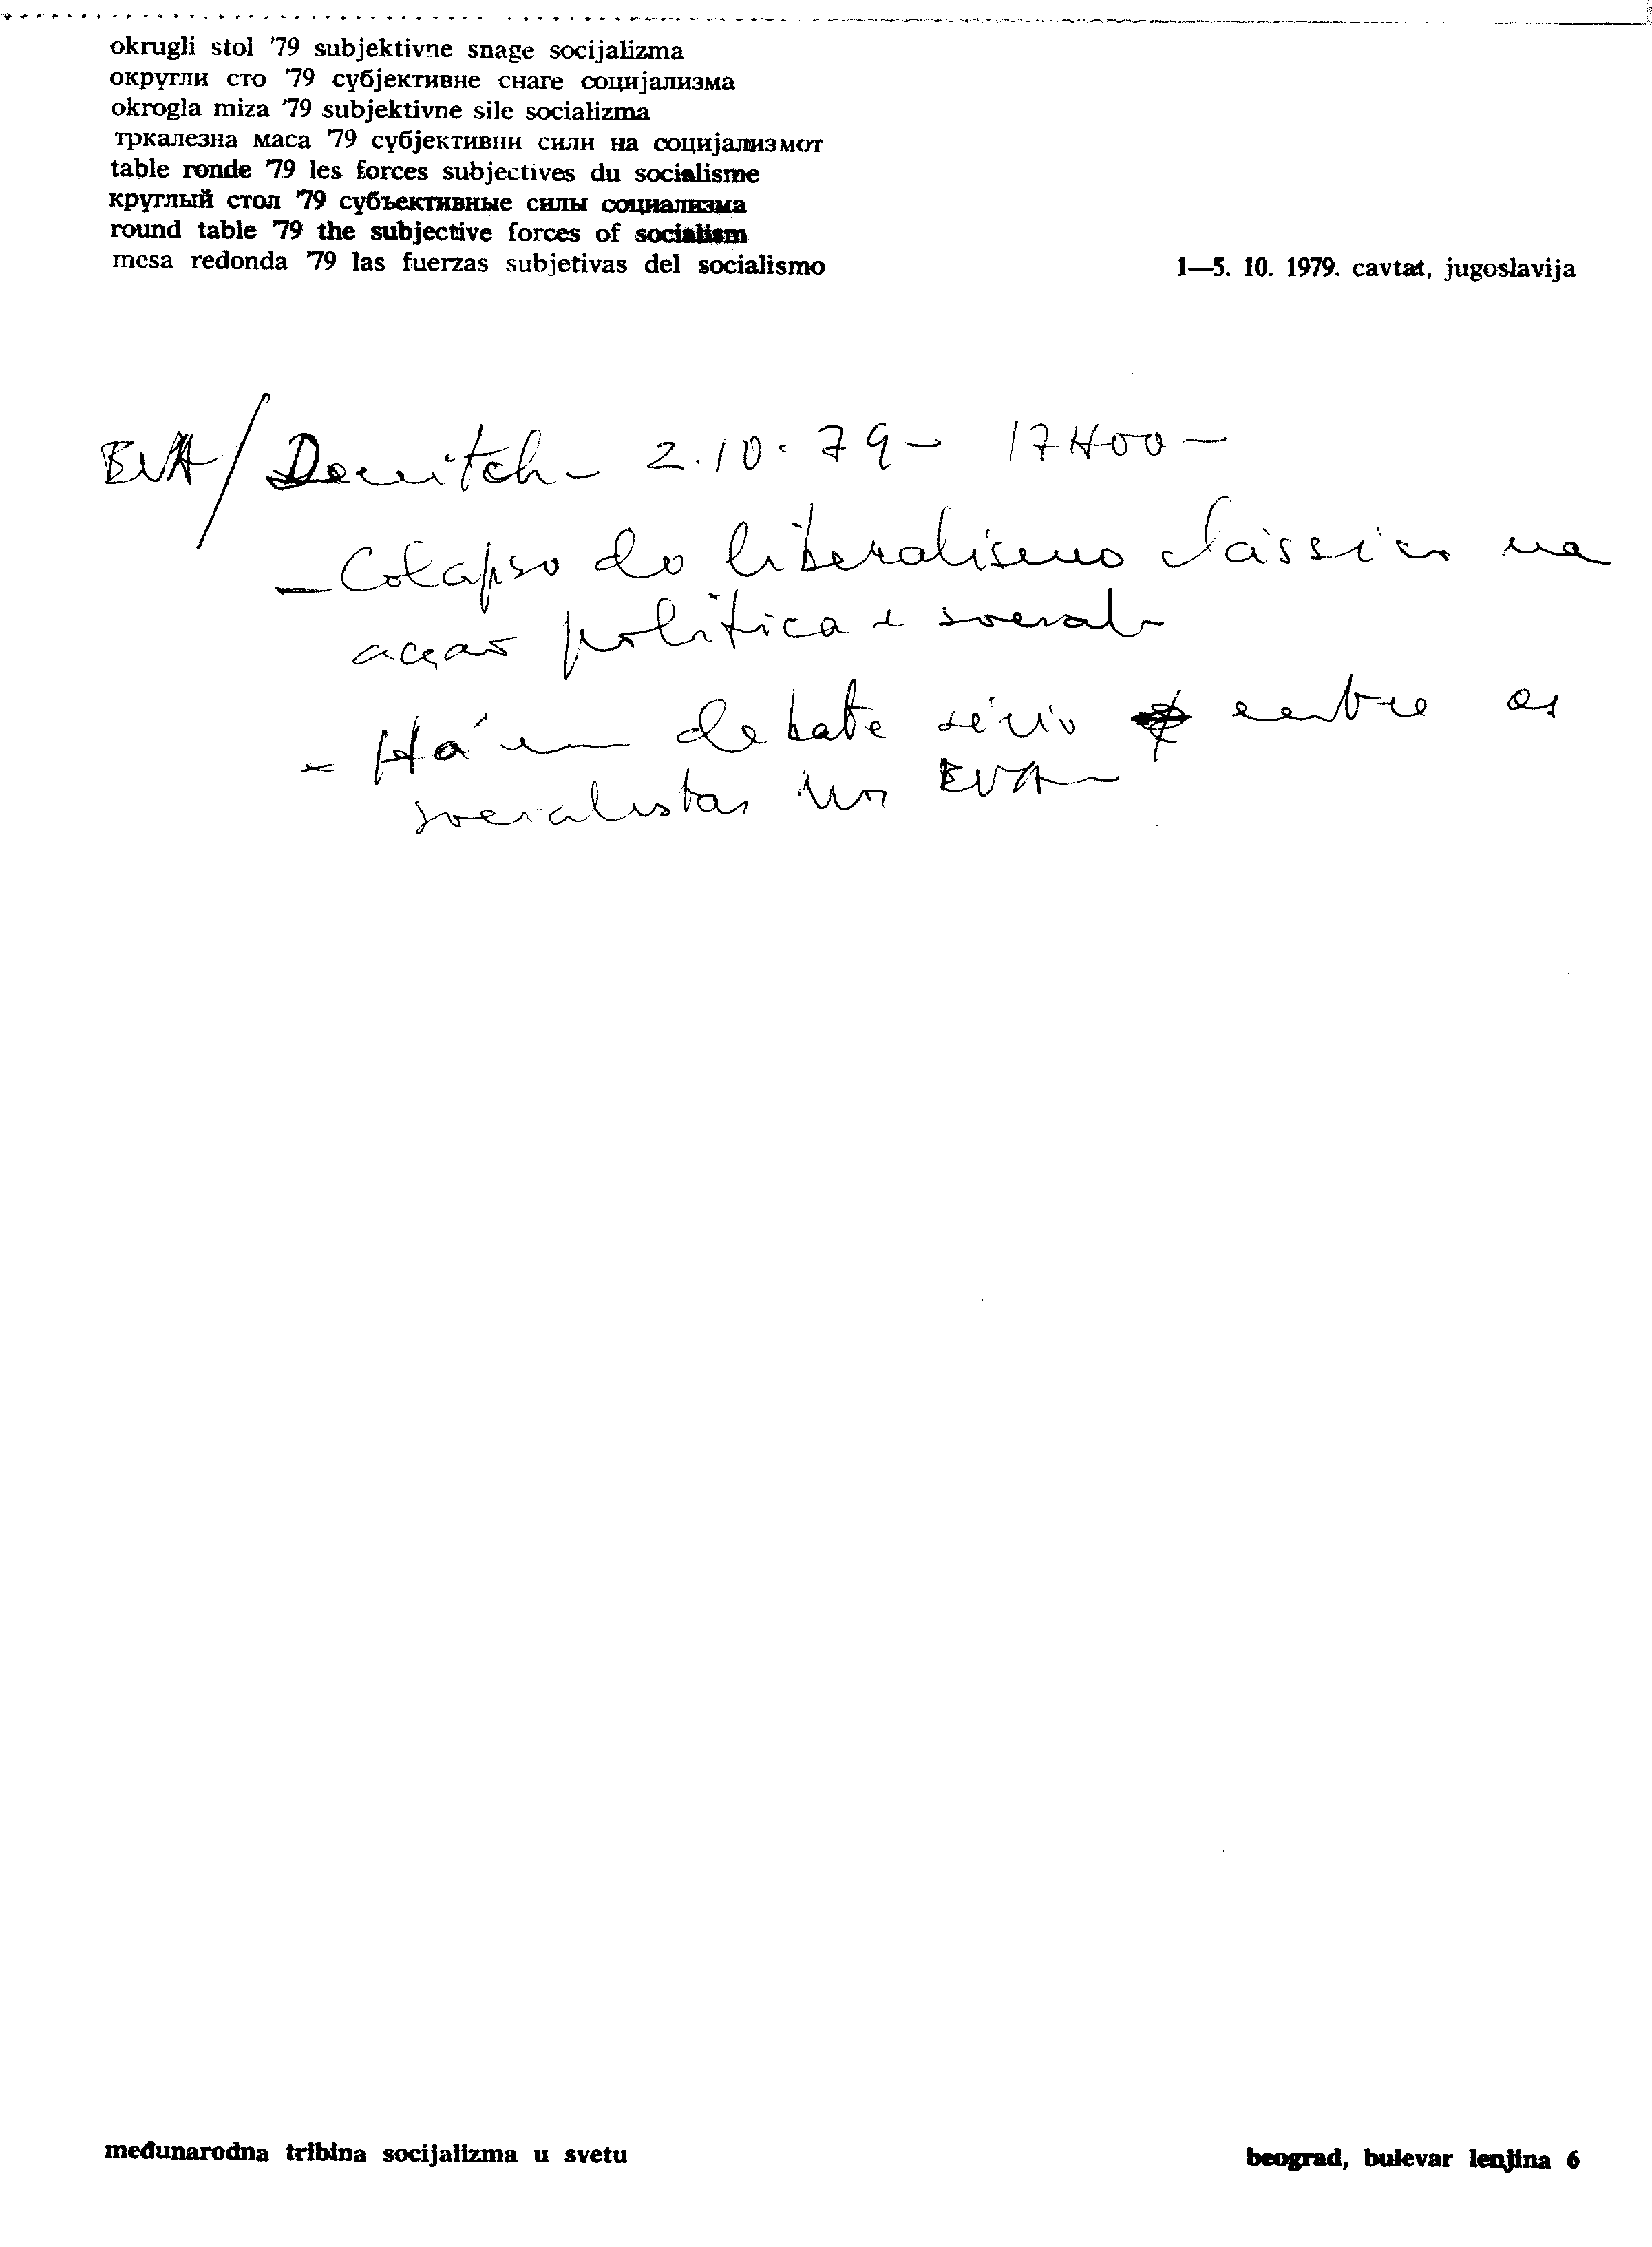 okrugli stol '79 subjektivne snage socijalizma
округли сто '79 субјективне снаге социјализма
okrogla miza '79 subjektivne sile socializma
тркалезна маса '79 субјективни сили на социјализмот
table ronde '79 les forces subjectives du socialisme
круглый стол '79 субъективные силы социализма
round table '79 the subjective forces of socialism
mesa redonda '79 las fuerzas subjetivas del socialismo
1—5. 10. 1979. cavtat, jugoslavija
EUA/ 2.10.79 - 17H00 -
- Colapso do liberalismo clássico na
acçao política e social -
- Há um debate sério entre os
socialistas nos EUA -
međunarodna tribina socijalizma u svetu
beograd, bulevar lenjina 6